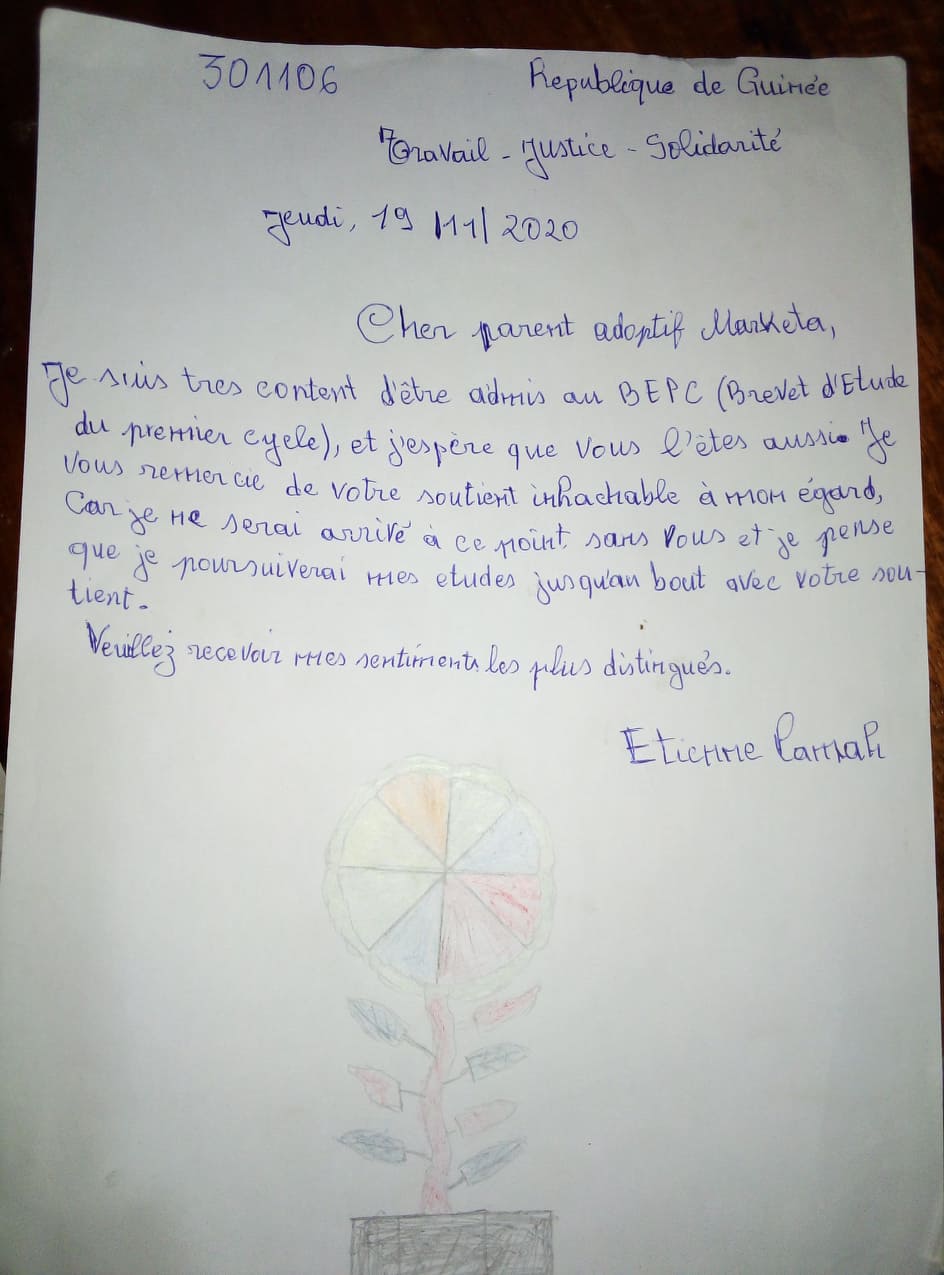 301106
Republique de Guinée
Travail - Justice - Solidarité
Jeudi, 19 /11/ 2020
Cher parent adoptif Marketa,
Je suis tres content d'être admis au BEPC (Brevet d'Etude
du premier cycle), et j'espère que vous l'êtes aussi. Je
Vous remercie de votre soutient inhachable à mon égard,
Car je ne serai arrivé à ce point sans Vous et je pense
que je poursuiverai mes etudes jusqu'au bout avec votre sou-
tient.
Veuillez recevoir mes sentiments les plus distingués.
Etienne Camah